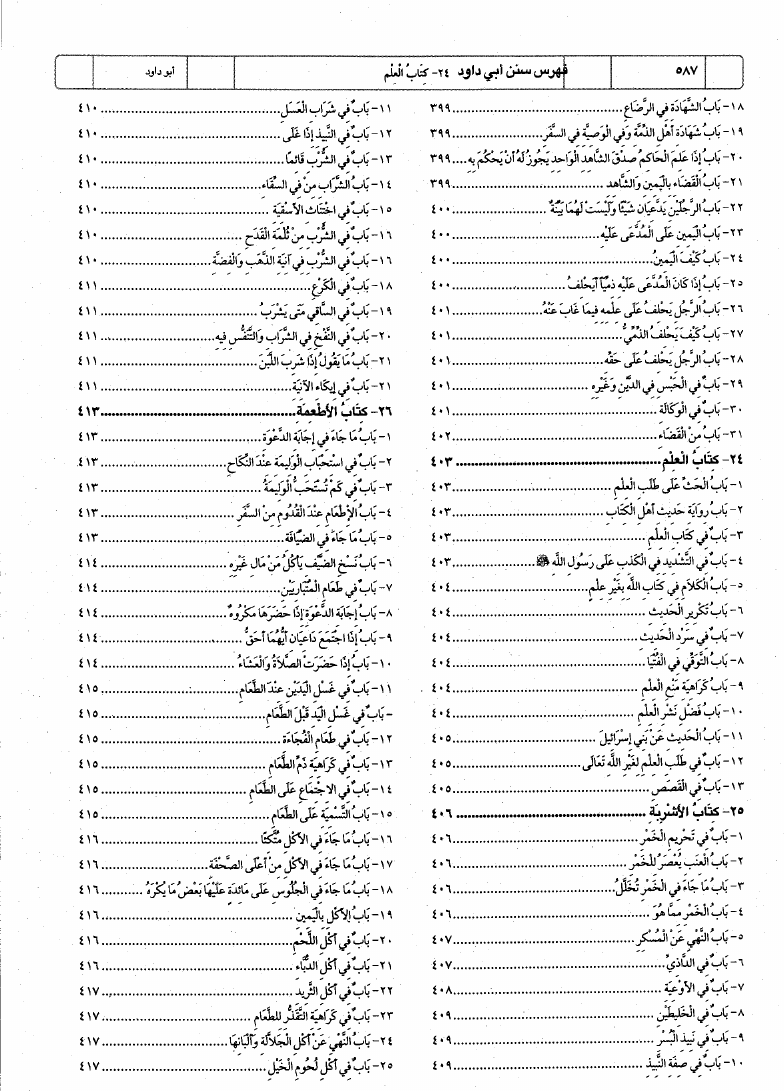 ٥٨٧ فهرس سنن أبي داود ٢٤- كتاب العلم أبو داود
١٨- بَابُ الشَّهَادَةِ في الرَّضَاعِ ........ ٣٩٩
١٩- بَابُ شَهَادَةِ أَهْلِ الذِّمَّةِ وَفِي الْوَصِيَّةِ في السَّفَرِ ........ ٣٩٩
٢٠- بَابُ إِذَا عَلِمَ الْحَاكِمُ صِدْقَ الشَّاهِدِ الْوَاحِدِ يَجُوزُ لَهُ أَنْ يَحْكُمَ بِهِ .... ٣٩٩
٢١- بَابُ الْقَضَاءِ بِالْيَمِينِ وَالشَّاهِدِ ........ ٣٩٩
٢٢- بَابُ الرَّجُلَيْنِ يَدَّعِيَانِ شَيْئًا وَلَيْسَتْ لَهُمَا بَيِّنَةٌ ........ ٤٠٠
٢٣- بَابُ الْيَمِينِ عَلَى الْمُدَّعَى عَلَيْهِ ........ ٤٠٠
٢٤- بَابُ كَيْفَ الْيَمِينُ ........ ٤٠٠
٢٥- بَابُ إِذَا كَانَ الْمُدَّعَى عَلَيْهِ ذِمِّيًّا أَيَحْلِفُ ........ ٤٠٠
٢٦- بَابُ الرَّجُلِ يَحْلِفُ عَلَى عِلْمِهِ فِيمَا غَابَ عَنْهُ ........ ٤٠١
٢٧- بَابُ كَيْفَ يَحْلِفُ الذِّمِّيُّ ........ ٤٠١
٢٨- بَابُ الرَّجُلِ يَحْلِفُ عَلَى حَقِّهِ ........ ٤٠١
٢٩- بَابٌ في الْحَبْسِ في الدَّيْنِ وَغَيْرِهِ ........ ٤٠١
٣٠- بَابٌ في الْوَكَالَةِ ........ ٤٠١
٣١- بَابٌ مِنَ الْقَضَاءِ ........ ٤٠٢
٢٤- كِتَابُ الْعِلْمِ ........ ٤٠٣
١- بَابُ الْحَثِّ عَلَى طَلَبِ الْعِلْمِ ........ ٤٠٣
٢- بَابُ رِوَايَةِ حَدِيثِ أَهْلِ الْكِتَابِ ........ ٤٠٣
٣- بَابٌ في كِتَابِ الْعِلْمِ ........ ٤٠٣
٤- بَابٌ في التَّشْدِيدِ في الْكَذِبِ عَلَى رَسُولِ اللَّهِ ﷺ ........ ٤٠٣
٥- بَابُ الْكَلَامِ في كِتَابِ اللَّهِ بِغَيْرِ عِلْمٍ ........ ٤٠٤
٦- بَابُ تَكْرِيرِ الْحَدِيثِ ........ ٤٠٤
٧- بَابٌ في سَرْدِ الْحَدِيثِ ........ ٤٠٤
٨- بَابُ التَّوَقِّي في الْفُتْيَا ........ ٤٠٤
٩- بَابُ كَرَاهِيَةِ مَنْعِ الْعِلْمِ ........ ٤٠٤
١٠- بَابُ فَضْلِ نَشْرِ الْعِلْمِ ........ ٤٠٤
١١- بَابُ الْحَدِيثِ عَنْ بَنِي إِسْرَائِيلَ ........ ٤٠٥
١٢- بَابٌ في طَلَبِ الْعِلْمِ لِغَيْرِ اللَّهِ تَعَالَى ........ ٤٠٥
١٣- بَابٌ في الْقَصَصِ ........ ٤٠٥
٢٥- كِتَابُ الأَشْرِبَةِ ........ ٤٠٦
١- بَابٌ في تَحْرِيمِ الْخَمْرِ ........ ٤٠٦
٢- بَابُ الْعِنَبِ يُعْصَرُ لِلْخَمْرِ ........ ٤٠٦
٣- بَابُ مَا جَاءَ في الْخَمْرِ تُخَلَّلُ ........ ٤٠٦
٤- بَابُ الْخَمْرِ مِمَّا هُوَ ........ ٤٠٦
٥- بَابُ النَّهْيِ عَنِ الْمُسْكِرِ ........ ٤٠٧
٦- بَابٌ في الدَّاذِيِّ ........ ٤٠٧
٧- بَابٌ في الأَوْعِيَةِ ........ ٤٠٨
٨- بَابٌ في الْخَلِيطَيْنِ ........ ٤٠٩
٩- بَابٌ في نَبِيذِ الْبُسْرِ ........ ٤٠٩
١٠- بَابٌ في صِفَةِ النَّبِيذِ ........ ٤٠٩
١١- بَابٌ في شَرَابِ الْعَسَلِ ........ ٤١٠
١٢- بَابٌ في النَّبِيذِ إِذَا غَلَى ........ ٤١٠
١٣- بَابٌ في الشُّرْبِ قَائِمًا ........ ٤١٠
١٤- بَابُ الشَّرَابِ مِنْ في السِّقَاءِ ........ ٤١٠
١٥- بَابٌ في اخْتِنَاثِ الأَسْقِيَةِ ........ ٤١٠
١٦- بَابٌ في الشُّرْبِ مِنْ ثُلْمَةِ الْقَدَحِ ........ ٤١٠
١٦- بَابٌ في الشُّرْبِ في آنِيَةِ الذَّهَبِ وَالْفِضَّةِ ........ ٤١٠
١٨- بَابٌ في الْكَرْعِ ........ ٤١١
١٩- بَابٌ في السَّاقِي مَتَى يَشْرَبُ ........ ٤١١
٢٠- بَابٌ في النَّفْخِ في الشَّرَابِ وَالتَّنَفُّسِ فِيهِ ........ ٤١١
٢١- بَابُ مَا يَقُولُ إِذَا شَرِبَ اللَّبَنَ ........ ٤١١
٢١- بَابٌ في إِيكَاءِ الآنِيَةِ ........ ٤١١
٢٦- كِتَابُ الأَطْعِمَةِ ........ ٤١٣
١- بَابُ مَا جَاءَ في إِجَابَةِ الدَّعْوَةِ ........ ٤١٣
٢- بَابٌ في اسْتِحْبَابِ الْوَلِيمَةِ عِنْدَ النِّكَاحِ ........ ٤١٣
٣- بَابٌ في كَمْ تُسْتَحَبُّ الْوَلِيمَةُ ........ ٤١٣
٤- بَابُ الإِطْعَامِ عِنْدَ الْقُدُومِ مِنَ السَّفَرِ ........ ٤١٣
٥- بَابُ مَا جَاءَ في الضِّيَافَةِ ........ ٤١٣
٦- بَابُ نَسْخِ الضَّيْفِ يَأْكُلُ مِنْ مَالِ غَيْرِهِ ........ ٤١٤
٧- بَابٌ في طَعَامِ الْمُتَبَارِيَيْنِ ........ ٤١٤
٨- بَابُ إِجَابَةِ الدَّعْوَةِ إِذَا حَضَرَهَا مَكْرُوهٌ ........ ٤١٤
٩- بَابُ إِذَا اجْتَمَعَ دَاعِيَانِ أَيُّهُمَا أَحَقُّ ........ ٤١٤
١٠- بَابُ إِذَا حَضَرَتِ الصَّلَاةُ وَالْعَشَاءُ ........ ٤١٤
١١- بَابٌ في غَسْلِ الْيَدَيْنِ عِنْدَ الطَّعَامِ ........ ٤١٥
- بَابٌ في غَسْلِ الْيَدِ قَبْلَ الطَّعَامِ ........ ٤١٥
١٢- بَابٌ في طَعَامِ الْفُجَاءَةِ ........ ٤١٥
١٣- بَابٌ في كَرَاهِيَةِ ذَمِّ الطَّعَامِ ........ ٤١٥
١٤- بَابٌ في الاِجْتِمَاعِ عَلَى الطَّعَامِ ........ ٤١٥
١٥- بَابُ التَّسْمِيَةِ عَلَى الطَّعَامِ ........ ٤١٥
١٦- بَابُ مَا جَاءَ في الأَكْلِ مُتَّكِئًا ........ ٤١٦
١٧- بَابُ مَا جَاءَ في الأَكْلِ مِنْ أَعْلَى الصَّحْفَةِ ........ ٤١٦
١٨- بَابُ مَا جَاءَ في الْجُلُوسِ عَلَى مَائِدَةٍ عَلَيْهَا بَعْضُ مَا يُكْرَهُ ........ ٤١٦
١٩- بَابُ الأَكْلِ بِالْيَمِينِ ........ ٤١٦
٢٠- بَابٌ في أَكْلِ اللَّحْمِ ........ ٤١٦
٢١- بَابٌ في أَكْلِ الدُّبَّاءِ ........ ٤١٦
٢٢- بَابٌ في أَكْلِ الثَّرِيدِ ........ ٤١٧
٢٣- بَابٌ في كَرَاهِيَةِ التَّقَذُّرِ لِلطَّعَامِ ........ ٤١٧
٢٤- بَابُ النَّهْيِ عَنْ أَكْلِ الْجَلَّالَةِ وَأَلْبَانِهَا ........ ٤١٧
٢٥- بَابٌ في أَكْلِ لُحُومِ الْخَيْلِ ........ ٤١٧